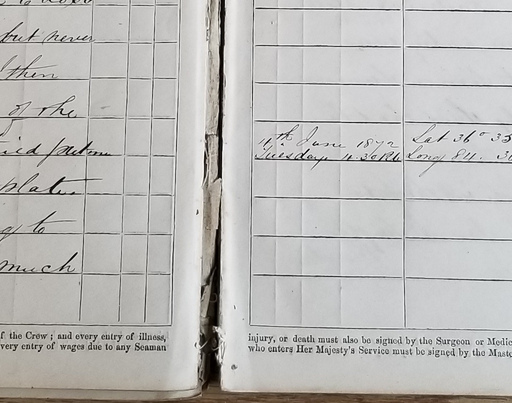 but never
then
of the
plate
g to
much
f the Crew ; and every entry of illness,
very entry of wages due to any Seaman
11th June 1872 Lat 36° 35
Tuesday 4.30 Long 84. 3
injury, or death must also be signed by the Surgeon or Medic
who enters Her Majesty's Service must be signed by the Maste